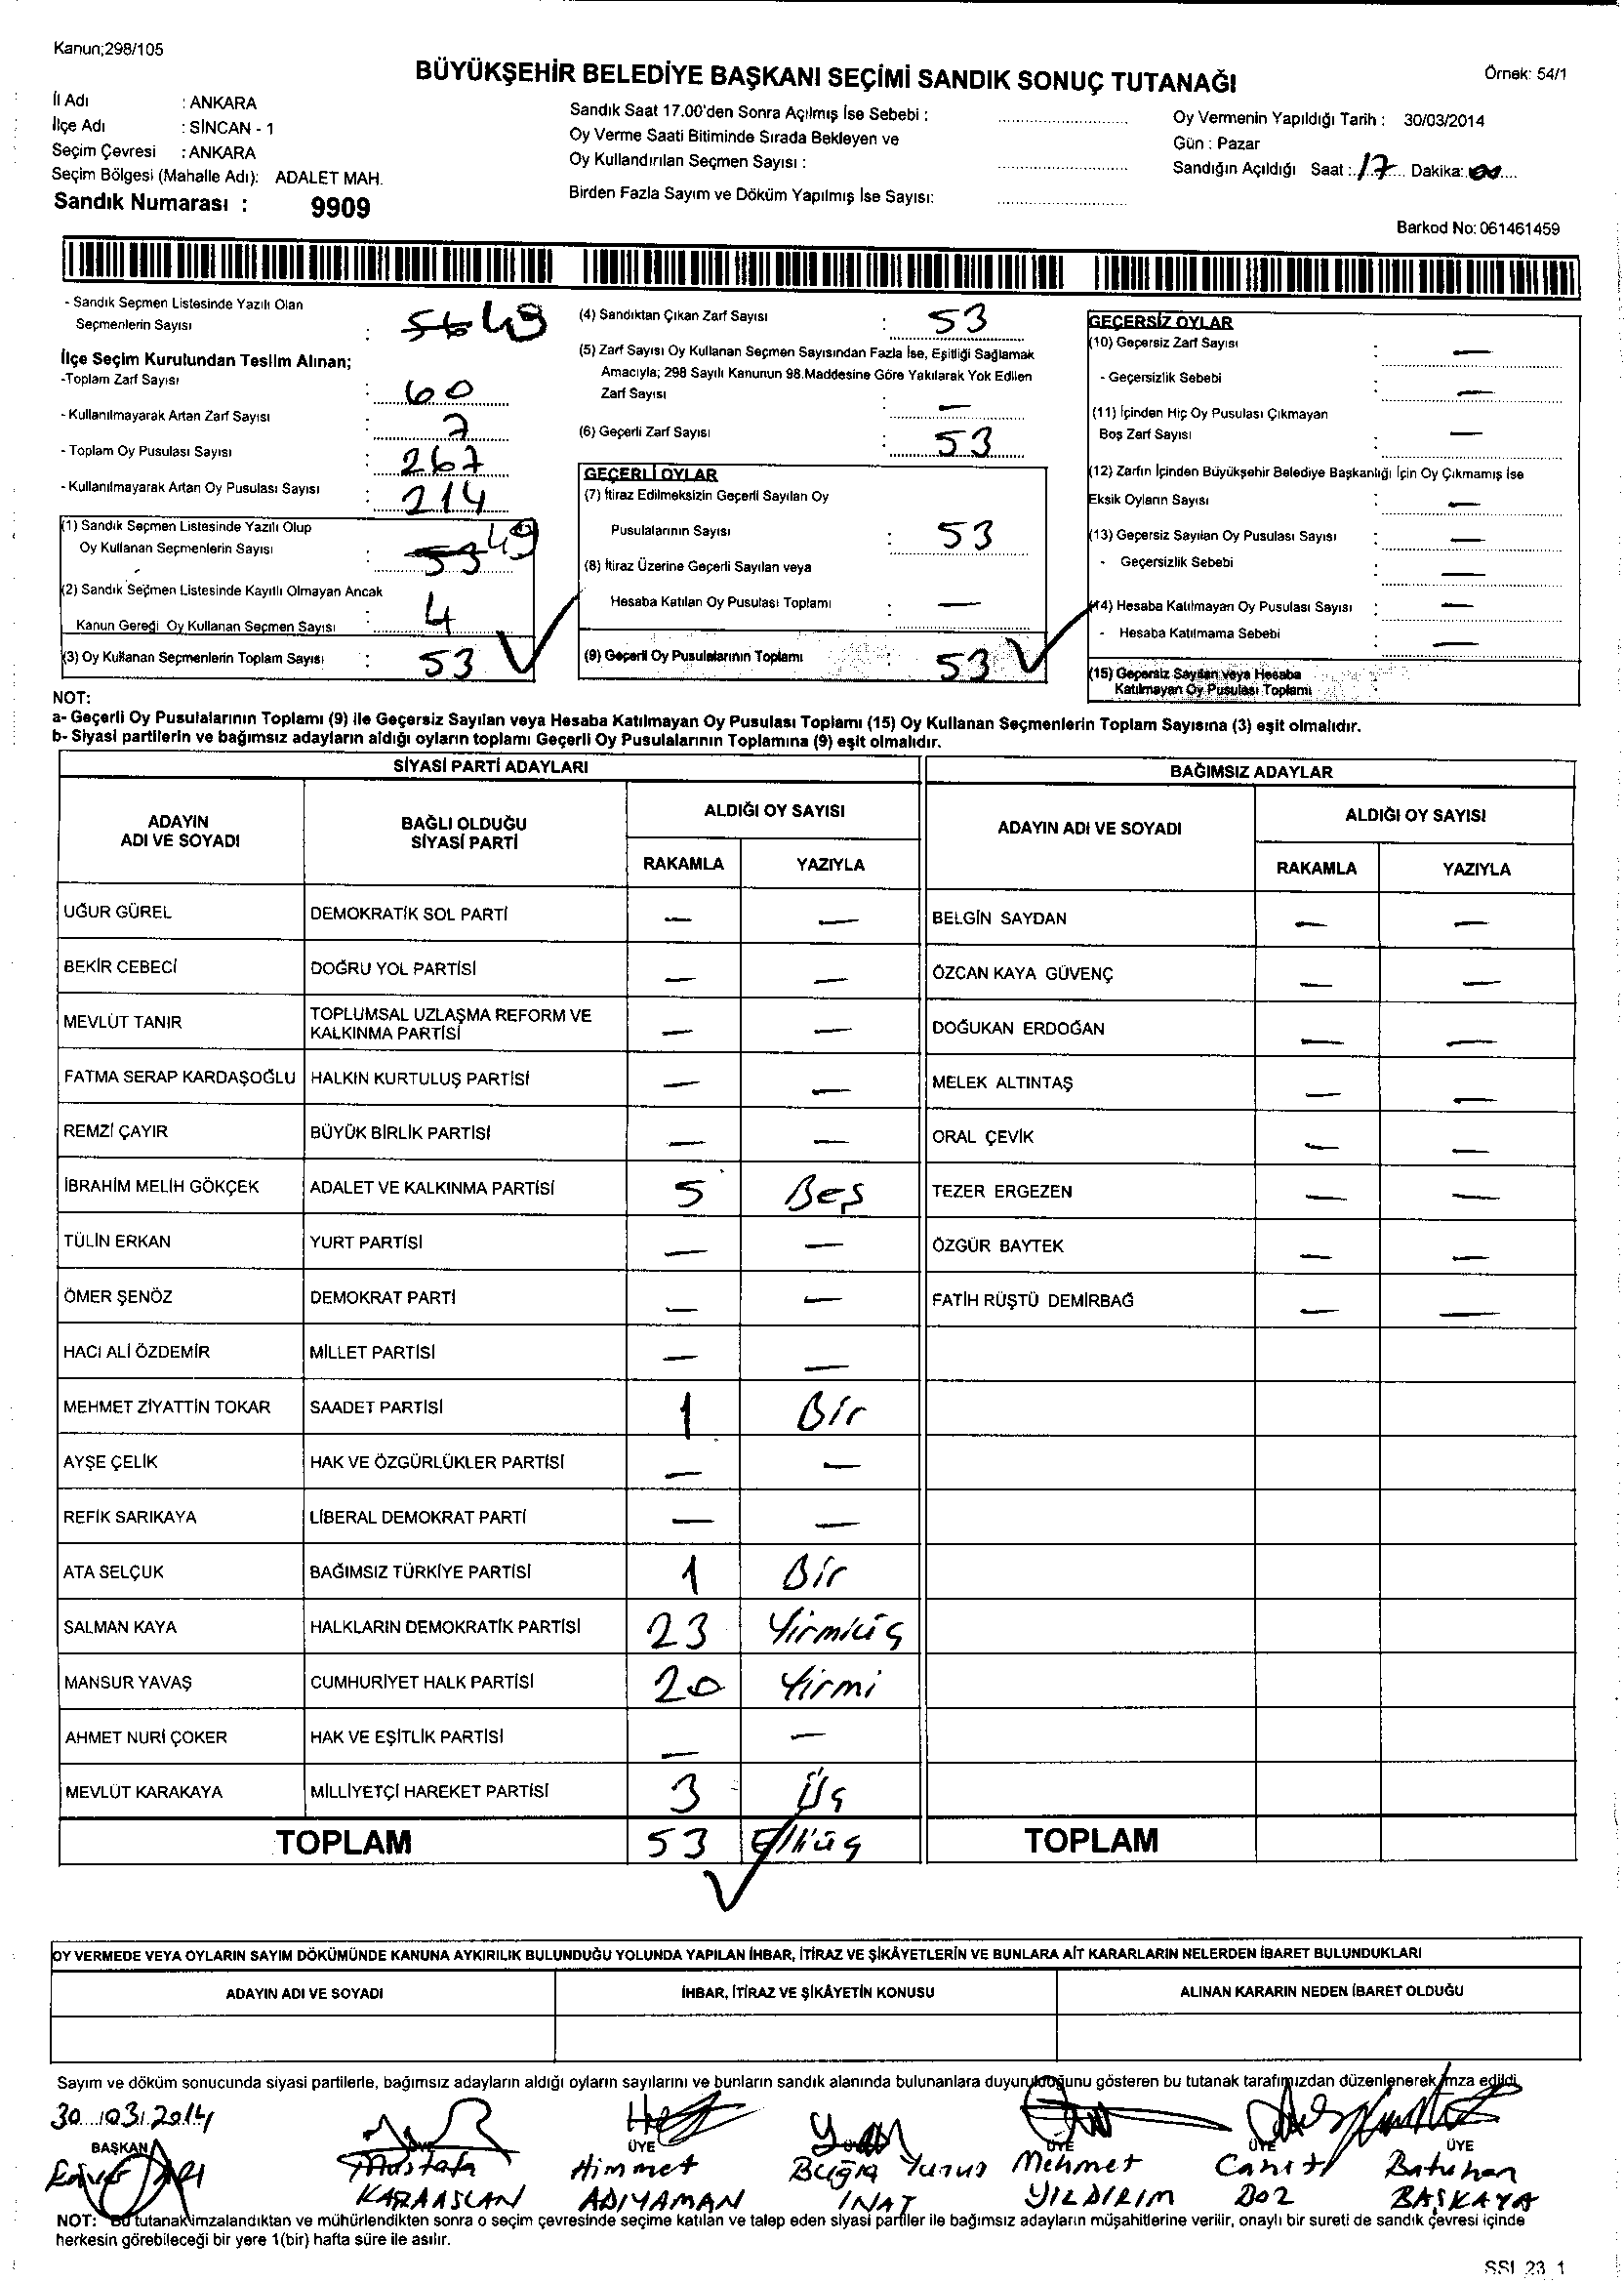 Kanun;298/105
BÜYÜKŞEHİR BELEDİYE BAŞKANI SEÇİMİ SANDIK SONUÇ TUTANAĞI
Örnek: 54/1
İl Adı : ANKARA
İlçe Adı : SİNCAN - 1
Seçim Çevresi : ANKARA
Seçim Bölgesi (Mahalle Adı): ADALET MAH.
Sandık Numarası : 9909
Sandık Saat 17.00'den Sonra Açılmış İse Sebebi :
Oy Verme Saati Bitiminde Sırada Bekleyen ve
Oy Kullandırılan Seçmen Sayısı :
Birden Fazla Sayım ve Döküm Yapılmış İse Sayısı:
Oy Vermenin Yapıldığı Tarih : 30/03/2014
Gün : Pazar
Sandığın Açıldığı Saat : 17 Dakika: 00
Barkod No: 061461459
- Sandık Seçmen Listesinde Yazılı Olan
Seçmenlerin Sayısı : 49
İlçe Seçim Kurulundan Teslim Alınan;
-Toplam Zarf Sayısı : 60
- Kullanılmayarak Artan Zarf Sayısı : 7
- Toplam Oy Pusulası Sayısı : 267
- Kullanılmayarak Artan Oy Pusulası Sayısı : 214
(1) Sandık Seçmen Listesinde Yazılı Olup
Oy Kullanan Seçmenlerin Sayısı : 53 49
(2) Sandık Seçmen Listesinde Kayıtlı Olmayan Ancak
Kanun Gereği Oy Kullanan Seçmen Sayısı : 4
(3) Oy Kullanan Seçmenlerin Toplam Sayısı : 53
(4) Sandıktan Çıkan Zarf Sayısı : 53
(5) Zarf Sayısı Oy Kullanan Seçmen Sayısından Fazla İse, Eşitliği Sağlamak
Amacıyla; 298 Sayılı Kanunun 98.Maddesine Göre Yakılarak Yok Edilen
Zarf Sayısı : —
(6) Geçerli Zarf Sayısı : 53
GEÇERLİ OYLAR
(7) İtiraz Edilmeksizin Geçerli Sayılan Oy
Pusulalarının Sayısı : 53
(8) İtiraz Üzerine Geçerli Sayılan veya
Hesaba Katılan Oy Pusulası Toplamı : —
(9) Geçerli Oy Pusulalarının Toplamı : 53
GEÇERSİZ OYLAR
(10) Geçersiz Zarf Sayısı : —
- Geçersizlik Sebebi : —
(11) İçinden Hiç Oy Pusulası Çıkmayan
Boş Zarf Sayısı : —
(12) Zarfın İçinden Büyükşehir Belediye Başkanlığı İçin Oy Çıkmamış İse
Eksik Oyların Sayısı : —
(13) Geçersiz Sayılan Oy Pusulası Sayısı : —
- Geçersizlik Sebebi : —
(14) Hesaba Katılmayan Oy Pusulası Sayısı : —
- Hesaba Katılmama Sebebi : —
(15) Geçersiz Sayılan veya Hesaba
Katılmayan Oy Pusulası Toplamı :
NOT:
a- Geçerli Oy Pusulalarının Toplamı (9) ile Geçersiz Sayılan veya Hesaba Katılmayan Oy Pusulası Toplamı (15) Oy Kullanan Seçmenlerin Toplam Sayısına (3) eşit olmalıdır.
b- Siyasi partilerin ve bağımsız adayların aldığı oyların toplamı Geçerli Oy Pusulalarının Toplamına (9) eşit olmalıdır.
SİYASİ PARTİ ADAYLARI
ADAYIN ADI VE SOYADI BAĞLI OLDUĞU SİYASİ PARTİ ALDIĞI OY SAYISI
RAKAMLA YAZIYLA
UĞUR GÜREL DEMOKRATİK SOL PARTİ — —
BEKİR CEBECİ DOĞRU YOL PARTİSİ — —
MEVLÜT TANIR TOPLUMSAL UZLAŞMA REFORM VE KALKINMA PARTİSİ — —
FATMA SERAP KARDAŞOĞLU HALKIN KURTULUŞ PARTİSİ — —
REMZİ ÇAYIR BÜYÜK BİRLİK PARTİSİ — —
İBRAHİM MELİH GÖKÇEK ADALET VE KALKINMA PARTİSİ 5 Beş
TÜLİN ERKAN YURT PARTİSİ — —
ÖMER ŞENÖZ DEMOKRAT PARTİ — —
HACI ALİ ÖZDEMİR MİLLET PARTİSİ — —
MEHMET ZİYATTİN TOKAR SAADET PARTİSİ 1 Bir
AYŞE ÇELİK HAK VE ÖZGÜRLÜKLER PARTİSİ — —
REFİK SARIKAYA LİBERAL DEMOKRAT PARTİ — —
ATA SELÇUK BAĞIMSIZ TÜRKİYE PARTİSİ 1 Bir
SALMAN KAYA HALKLARIN DEMOKRATİK PARTİSİ 23 Yirmiüç
MANSUR YAVAŞ CUMHURİYET HALK PARTİSİ 20 Yirmi
AHMET NURİ ÇOKER HAK VE EŞİTLİK PARTİSİ — —
MEVLÜT KARAKAYA MİLLİYETÇİ HAREKET PARTİSİ 3 Üç
TOPLAM 53 Elliüç
BAĞIMSIZ ADAYLAR
ADAYIN ADI VE SOYADI ALDIĞI OY SAYISI
RAKAMLA YAZIYLA
BELGİN SAYDAN — —
ÖZCAN KAYA GÜVENÇ — —
DOĞUKAN ERDOĞAN — —
MELEK ALTINTAŞ — —
ORAL ÇEVİK — —
TEZER ERGEZEN — —
ÖZGÜR BAYTEK — —
FATİH RÜŞTÜ DEMİRBAĞ — —
TOPLAM
OY VERMEDE VEYA OYLARIN SAYIM DÖKÜMÜNDE KANUNA AYKIRILIK BULUNDUĞU YOLUNDA YAPILAN İHBAR, İTİRAZ VE ŞİKÂYETLERİN VE BUNLARA AİT KARARLARIN NELERDEN İBARET BULUNDUKLARI
ADAYIN ADI VE SOYADI İHBAR, İTİRAZ VE ŞİKÂYETİN KONUSU ALINAN KARARIN NEDEN İBARET OLDUĞU
Sayım ve döküm sonucunda siyasi partilerle, bağımsız adayların aldığı oyların sayılarını ve bunların sandık alanında bulunanlara duyurulduğunu gösteren bu tutanak tarafımızdan düzenlenerek imza edildi.
30/03/2014
BAŞKAN ÜYE ÜYE ÜYE ÜYE
Mustafa Himmet Buğra Yunus Mehmet Cahit Batuhan
KARAASLAN ADIYAMAN İNAT YILDIRIM BAŞKAYA
NOT: Bu tutanak imzalandıktan ve mühürlendikten sonra o seçim çevresinde seçime katılan ve talep eden siyasi partiler ile bağımsız adayların müşahitlerine verilir, onaylı bir sureti de sandık çevresi içinde
herkesin görebileceği bir yere 1(bir) hafta süre ile asılır.